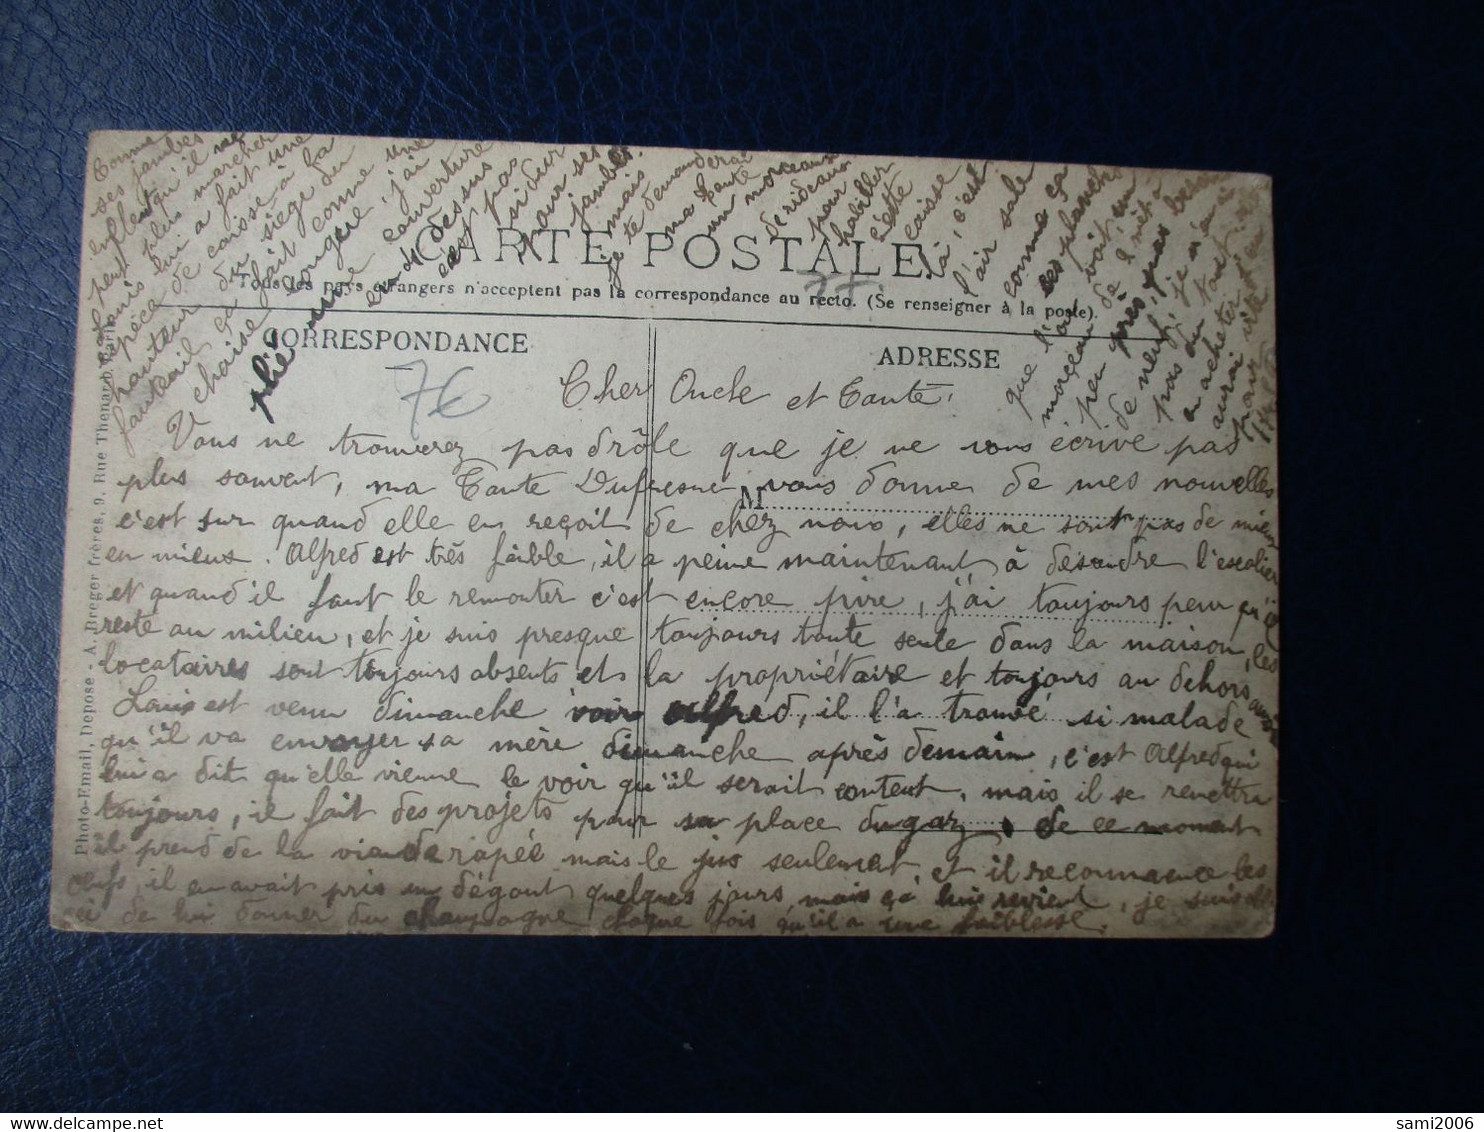 CARTE POSTALE
Tous les pays étrangers n'acceptent pas la correspondance au recto. (Se renseigner à la poste).
CORRESPONDANCE
ADRESSE
7€
77
M
Photo-Email, Depose - A. Breger frères, 9, Rue Thenard, Paris
Cher Oncle et Tante,
Vous ne trouverez pas drôle que je ne vous écrive pas
plus souvent, ma Tante Dufresne vous donne de mes nouvelles
c'est sur quand elle en reçoit de chez nous, elles ne sont pas de mieux
en mieux. Alfred est très faible, il a peine maintenant à desendre l'escalier
et quand il faut le remonter c'est encore pire, j'ai toujours peur qu'il
reste au milieu, et je suis presque toujours toute seule dans la maison, les
locataires sont toujours absents et la propriétaire et toujours au dehors aussi
Louis est venu dimanche voir Alfred, il l'a trouvé si malade
qu'il va envoyer sa mère dimanche après demain, c'est Alfred qui
lui a dit qu'elle vienne le voir qu'il serait content, mais il se remettra
toujours, il fait des projets pour sa place du gaz, de ce moment
il prend de la viande rapée mais le jus seulement, et il recommence les
œufs, il en avait pris un dégout quelques jours, mais ça lui revient, je suis
de lui donner du champagne chaque fois qu'il a une faiblesse.
Comme
ses jambes
enflent qu'il ne
peut plus marcher
lui a fait une
pièce de caisse à la
hauteur du siège du
fauteuil ça fait comme une
chaise longue, j'ai
plié une couverture
en dessus
c'est pas
si dur
pour ses
jambes.
mais
je te demanderai
ma Tante
un morceau
de rideaux
pour
habiller
cette
caisse
là, c'est
l'air sale
comme ça
les planches
que l'on voit, un
morceau de l'mêt à
peu près, pas besoin
de neuf, je n'en ai
pas ou tout
en acheter
aurai
pour